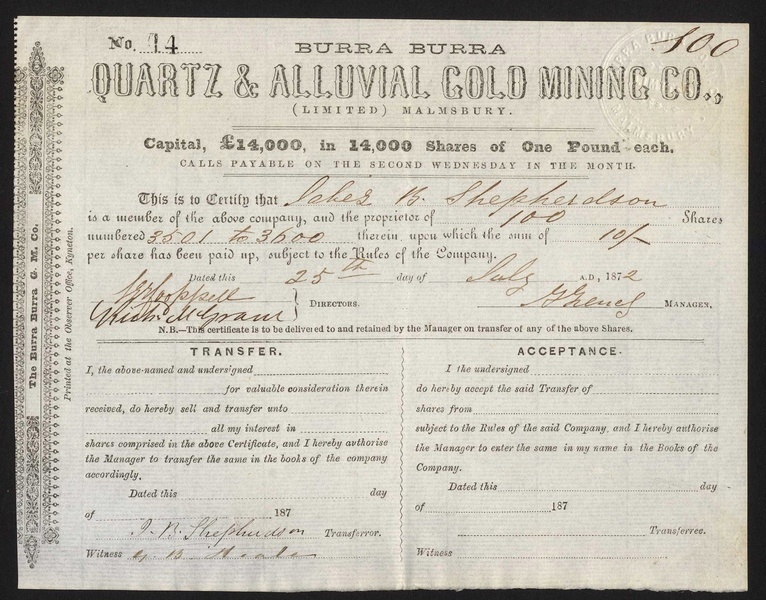 No. 14
100
BURRA BURRA
QUARTZ & ALLUVIAL GOLD MINING CO.,
(LIMITED) MALMSBURY.
Capital, £14,000, in 14,000 Shares of One Pound each.
CALLS PAYABLE ON THE SECOND WEDNESDAY IN THE MONTH.
This is to Certify that Jabez B. Shepherdson
is a member of the above company, and the proprietor of 100 Shares
numbered 3501 to 3600 therein upon which the sum of 10/-
per share has been paid up, subject to the Rules of the Company.
Dated this 25th day of July A.D., 1872
DIRECTORS.
MANAGER.
N.B.—This certificate is to be delivered to and retained by the Manager on transfer of any of the above Shares.
TRANSFER.
I, the above-named and undersigned
for valuable consideration therein
received, do hereby sell and transfer unto
all my interest in
shares comprised in the above Certificate, and I hereby authorise
the Manager to transfer the same in the books of the company
accordingly.
Dated this day
of 187
J. B. Shepherdson Transferror.
Witness
ACCEPTANCE.
I the undersigned
do hereby accept the said Transfer of
shares from
subject to the Rules of the said Company, and I hereby authorise
the Manager to enter the same in my name in the Books of the
Company.
Dated this day
of 187
Transferree.
Witness
The Burra Burra G. M. Co.
Printed at the Observer Office, Kyneton.